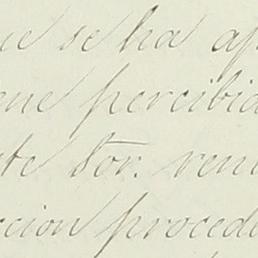 ue se ha ap
ene percibid
te Sor. ren
ccion procede